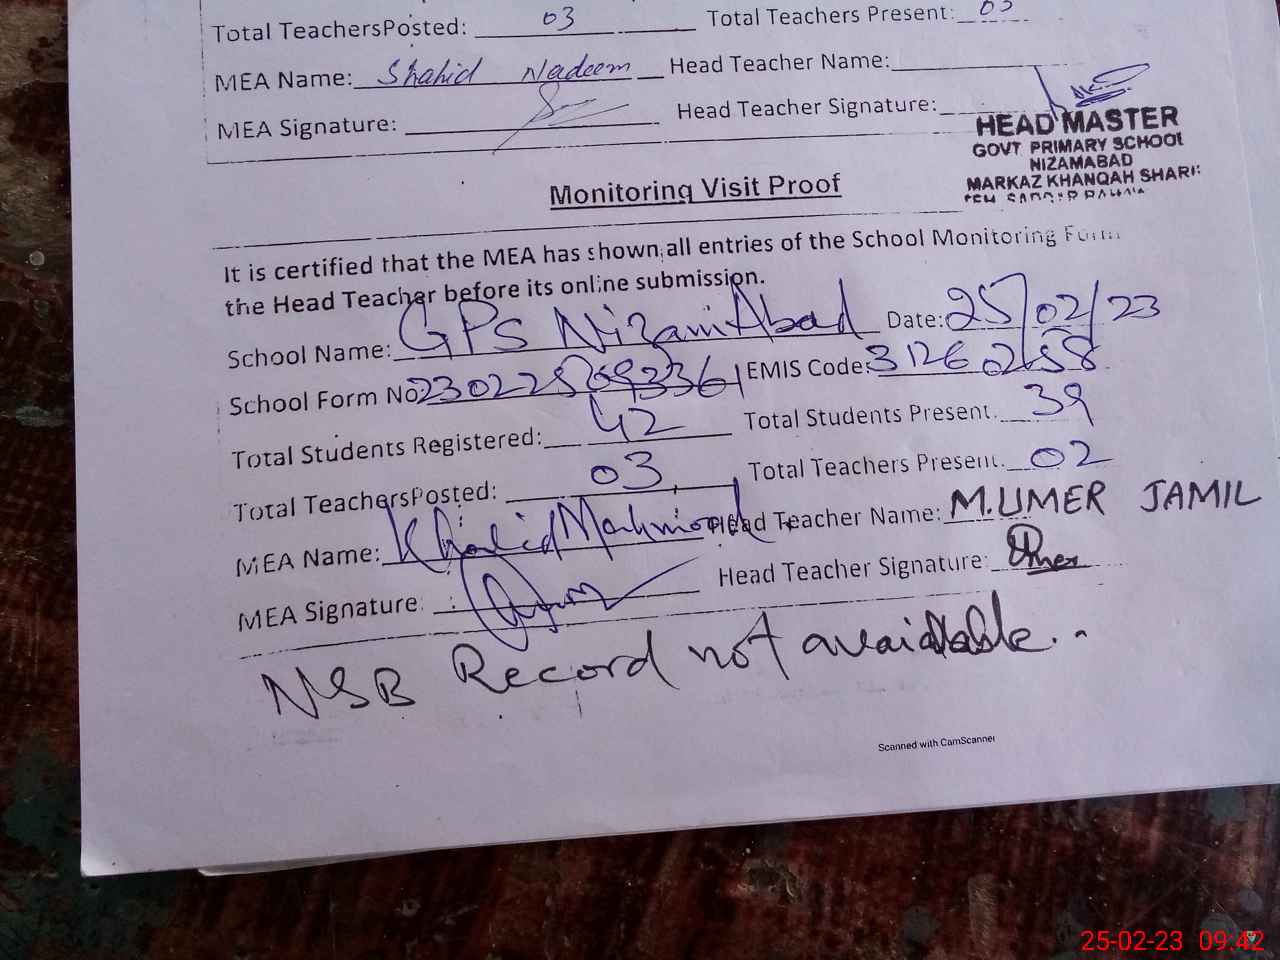 Total TeachersPosted: 03 Total Teachers Present: 03
MEA Name: Shahid Nadeem Head Teacher Name:
MEA Signature: Head Teacher Signature:
HEAD MASTER
GOVT PRIMARY SCHOOL
NIZAMABAD
MARKAZ KHANQAH SHARIF
Monitoring Visit Proof
It is certified that the MEA has shown all entries of the School Monitoring Form
the Head Teacher before its online submission.
School Name: GPS NizamAbad Date: 25/02/23
School Form No EMIS Code: 31260258
Total Students Registered: 42 Total Students Present. 39
Total TeachersPosted: 03 Total Teachers Present. 02
MEA Name: Khalid Mahmood Head Teacher Name: M.UMER JAMIL
MEA Signature: Head Teacher Signature: Umer
NSB Record not available..
Scanned with CamScanner
25-02-23 09:42